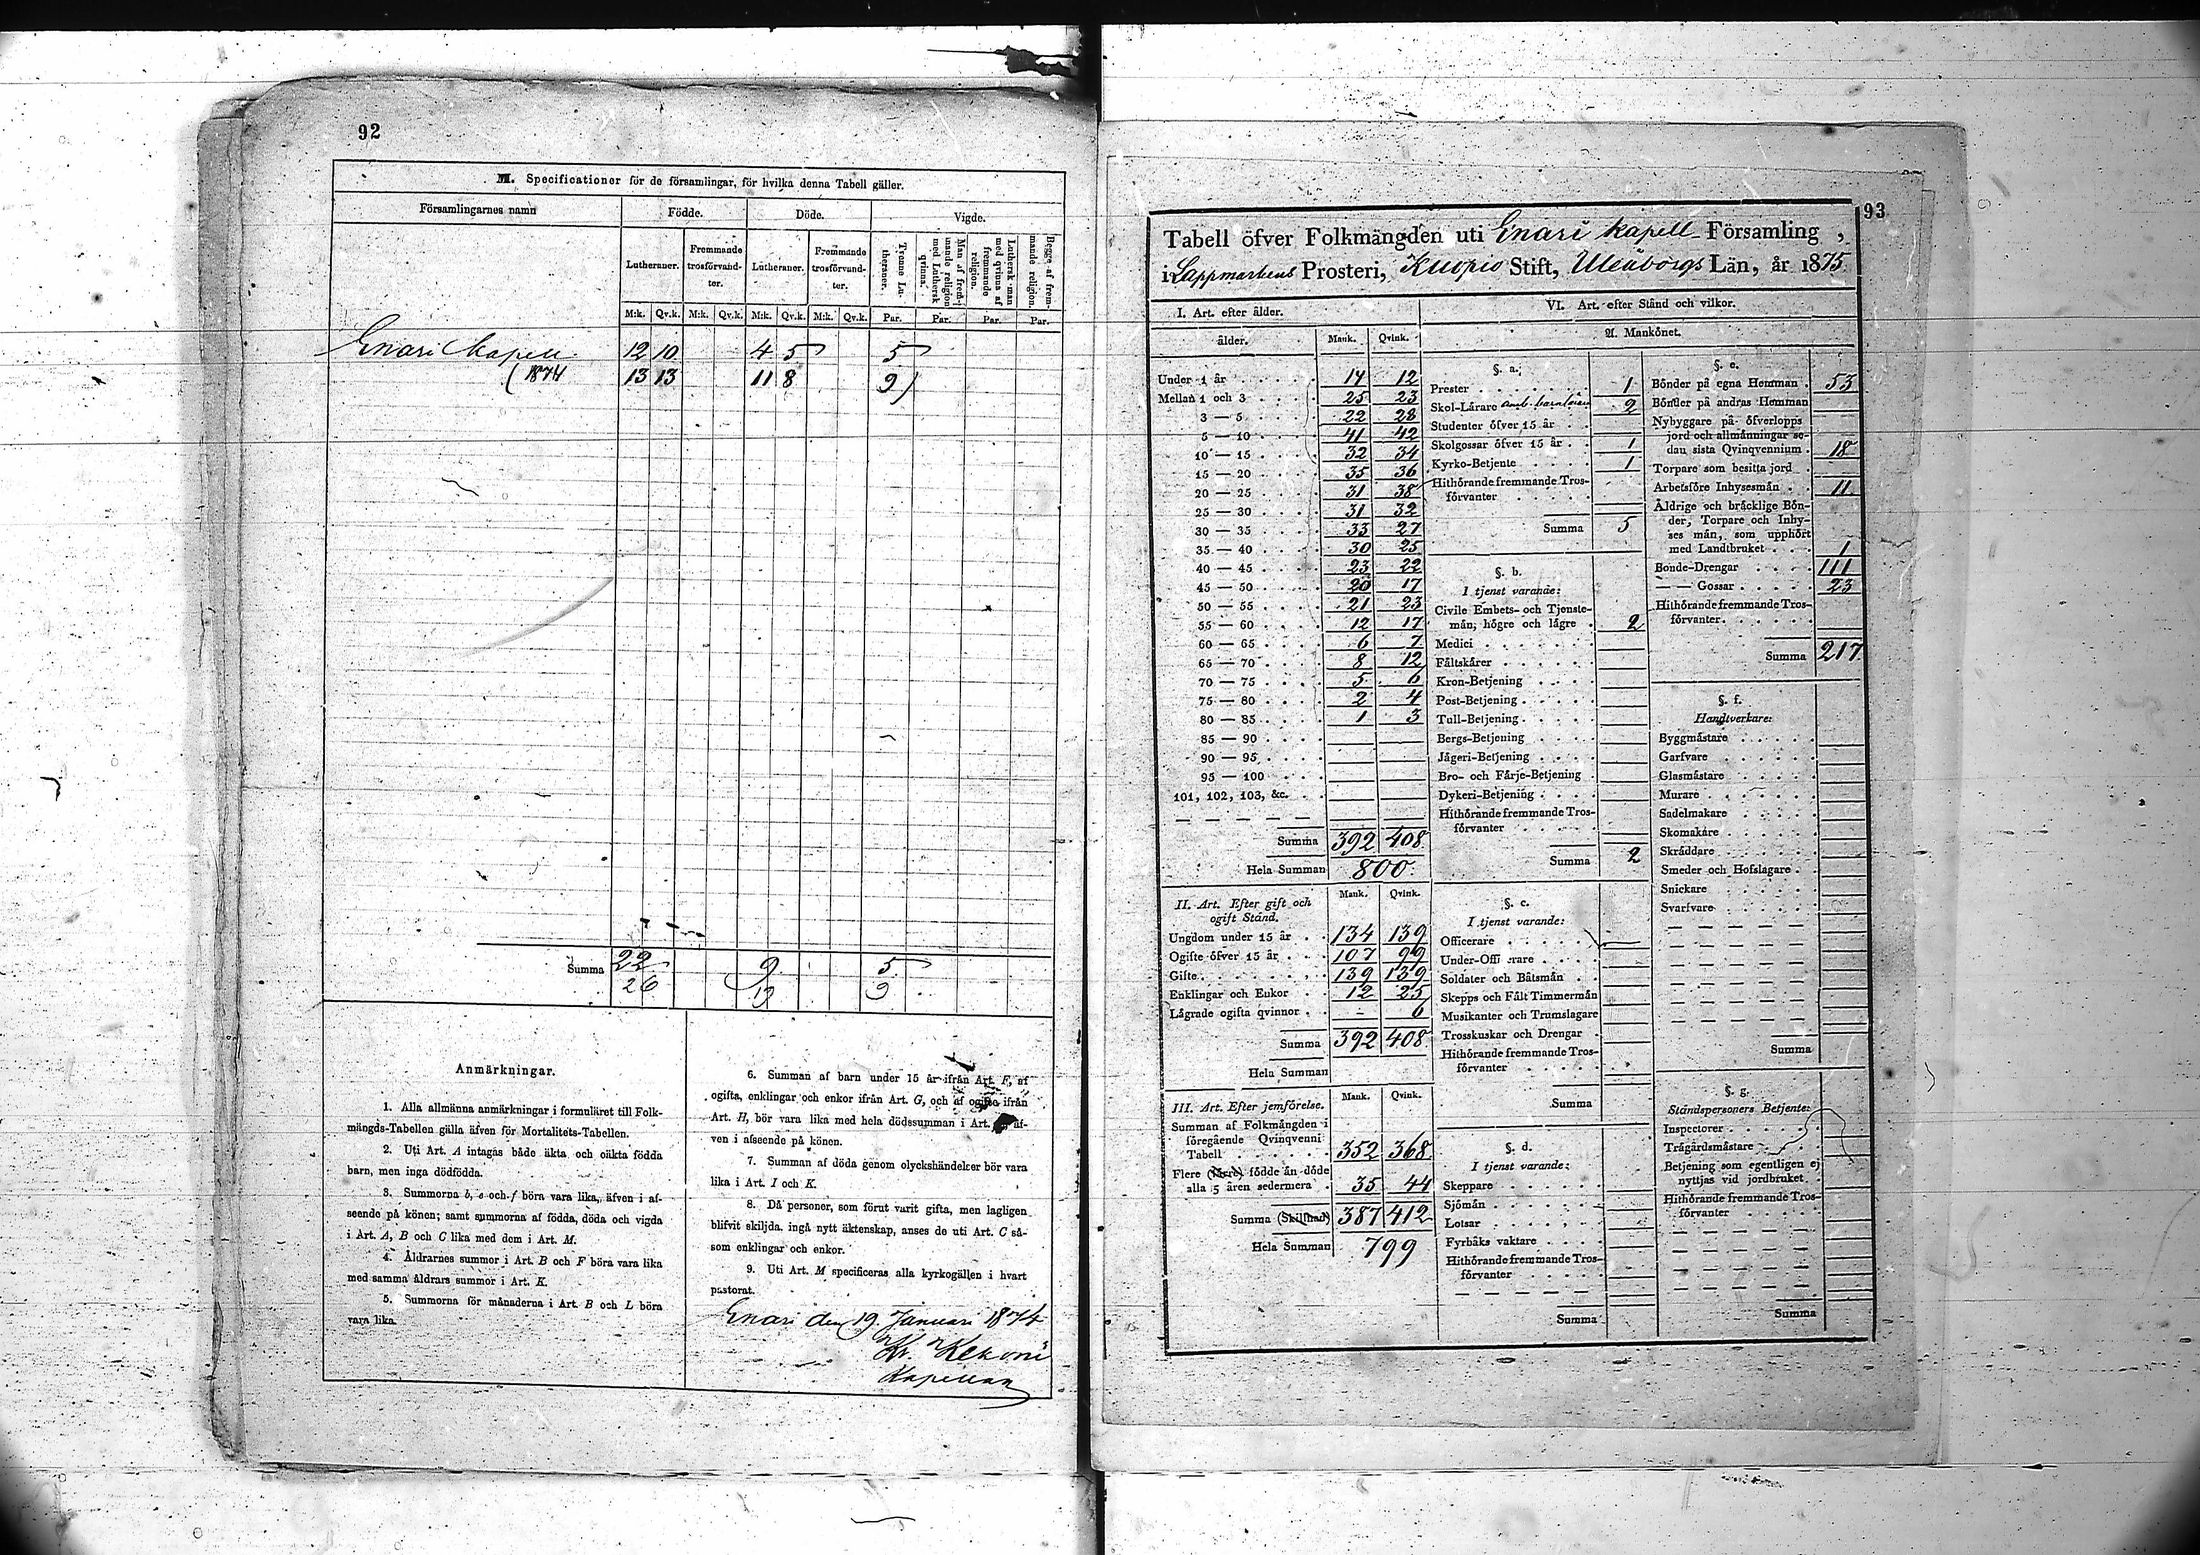 92
M. Specificationer för de församlingar, för hvilka denna Tabell gäller.
Församlingarnes namn
Födde. Döde. Vigde.
Lutheraner. Fremmande trosförvandter. Lutheraner. Fremmande trosförvandter. Trenne Lutheraner. Man af fremmande religion med Luthersk qvinna. Luthersk man med qvinna af fremmande religion. Begge af fremmande religion.
M:k. Qv.k. M:k. Qv.k. M:k. Qv.k. M:k. Qv.k. Par. Par. Par. Par.
Enari Kapell 12 10 4 5 5
(1874 13 13 11 8 9)
Summa 22 9 5
26 19 9
Anmärkningar.
1. Alla allmänna anmärkningar i formuläret till Folk-
mängds-Tabellen gälla äfven för Mortalitets-Tabellen.
2. Uti Art. A intagas både äkta och oäkta födda
barn, men inga dödfödda.
3. Summorna b, e och f böra vara lika, äfven i af-
seende på könen; samt summorna af födda, döda och vigda
i Art. A, B och C lika med dem i Art. M.
4. Åldrarnes summor i Art. B och F böra vara lika
med samma åldrars summor i Art. K.
5. Summorna för månaderna i Art. B och L böra
vara lika.
6. Summan af barn under 15 år ifrån Art. F, af
ogifta, enklingar och enkor ifrån Art. G, och af ogifta ifrån
Art. H, bör vara lika med hela dödssumman i Art. äf-
ven i afseende på könen.
7. Summan af döda genom olyckshändelser bör vara
lika i Art. I och K.
8. Då personer, som förut varit gifta, men lagligen
blifvit skiljda, ingå nytt äktenskap, anses de uti Art. C så-
som enklingar och enkor.
9. Uti Art. M specificeras alla kyrkogällen i hvart
pastorat.
Enari den 19 Januari 1874
Kapellan
93
Tabell öfver Folkmängden uti Enari kapell Församling,
i Lappmarkens Prosteri, Kuopio Stift, Uleåborgs Län, år 1875
I. Art. efter ålder.
ålder. Mank. Qvink.
Under 1 år 14 12
Mellan 1 och 3 25 23
3 — 5 22 28
5 — 10 41 42
10 — 15 32 34
15 — 20 35 36
20 — 25 31 38
25 — 30 31 32
30 — 35 33 27
35 — 40 30 25
40 — 45 23 22
45 — 50 20 17
50 — 55 21 23
55 — 60 12 17
60 — 65 6 7
65 — 70 8 12
70 — 75 5 6
75 — 80 2 4
80 — 85 1 3
85 — 90
90 — 95
95 — 100
101, 102, 103, &c.
Summa 392 408
Hela Summan 800
II. Art. Efter gift och ogift Stånd. Mank. Qvink.
Ungdom under 15 år 134 139
Ogifte öfver 15 år 107 99
Gifte 139 139
Enklingar och Enkor 12 25
Lägrade ogifta qvinnor - 6
Summa 392 408
Hela Summan
III. Art. Efter jemförelse. Mank. Qvink.
Summan af Folkmängden i
föregående Qvinqvenni
Tabell 352 368
Flere (färre) födde än döde
alla 5 åren sedermera 35 44
Summa (Skilnad) 387 412
Hela Summan 799
VI. Art. efter Stånd och vilkor.
A. Mankönet.
§. a.
Prester 1
Skol-Lärare amb. barnlärare 2
Studenter öfver 15 år
Skolgossar öfver 15 år 1
Kyrko-Betjente 1
Hithörande fremmande Tros-
förvanter
Summa 5
§. b.
I tjenst varande:
Civile Embets- och Tjenste-
män, högre och lägre 2
Medici
Fältskärer
Kron-Betjening
Post-Betjening
Tull-Betjening
Bergs-Betjening
Jägeri-Betjening
Bro- och Färje-Betjening
Dykeri-Betjening
Hithörande fremmande Tros-
förvanter
Summa 2
§. c.
I tjenst varande:
Officerare
Under-Officerare
Soldater och Båtsmän
Skepps och Fält Timmermän
Musikanter och Trumslagare
Trosskuskar och Drengar
Hithörande fremmande Tros-
förvanter
Summa
§. d.
I tjenst varande:
Skeppare
Sjömän
Lotsar
Fyrbåks vaktare
Hithörande fremmande Tros-
förvanter
Summa
§. e.
Bönder på egna Hemman 53
Bönder på andras Hemman
Nybyggare på öfverlopps
jord och allmänningar se-
dan sista Qvinqvennium 18
Torpare som besitta jord
Arbetsföre Inhysesmän 11
Åldrige och bräcklige Bön-
der, Torpare och Inhy-
ses män, som upphört
med Landtbruket 1
Bonde-Drengar 111
— — Gossar 23
Hithörande fremmande Tros-
förvanter
Summa 217
§. f.
Handtverkare:
Byggmästare
Garfvare
Glasmästare
Murare
Sadelmakare
Skomakare
Skräddare
Smeder och Hofslagare
Snickare
Svarfvare
Summa
§. g.
Ståndspersoners Betjente:
Inspectorer
Trägårdsmästare
Betjening som egentligen ej
nyttjas vid jordbruket
Hithörande fremmande Tros-
förvanter
Summa